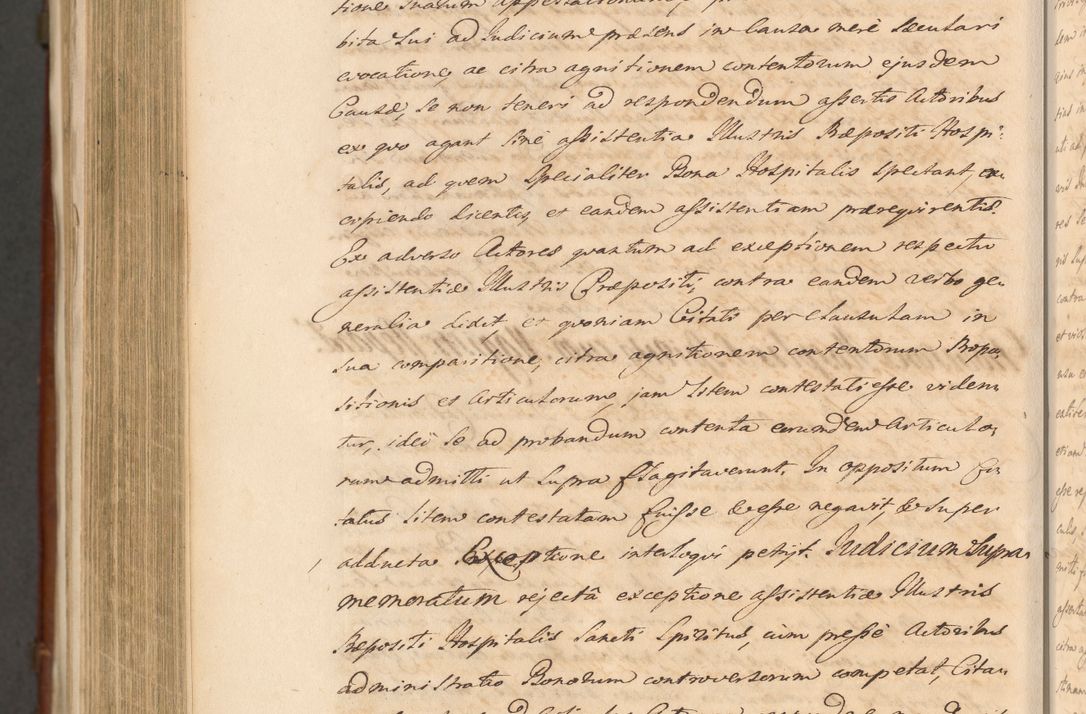 bita Sui ad Judicium præsens in Causa merè Sæculari
evocatione, ac citra agnitionem contentorum ejusdem
Causæ, Se non teneri ad respondendum assertis Actoribus
ex quo agant Sine assistentia Illustris Præpositi Hospi-
talis, ad quem Specialiter Bona Hospitalis Spectant, ex-
cipiendo dicentis, et eandem assistentiam prærequirentis.
Ex adverso Actores quantum ad exceptionem respectu
assistentiæ Illustris Præpositi, contra eandem verbo ge-
neralia dedit et quoniam Citati per clausulam in
Sua comparitione, citra agnitionem contentorum Propo-
sitionis et Articulorum, jam Litem contestati esse viden-
tur, ideò Se ad probandum contenta eorundem Articulo-
rum admitti ut Supra flagitaverunt. In oppositum Ci-
tatus Litem contestatam fuisse & esse negavit, & Super
adducta Exceptione interloqui petijt. Judicium Supra
memoratum rejectâ exceptione assistentiæ Illustris
Præpositi Hospitalis Sancti Spiritus, cùm presse Actoribus
administratio Bonorum controversorum competat, Cita-